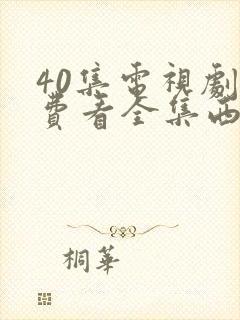 40集電視劇
費看全集西
桐華